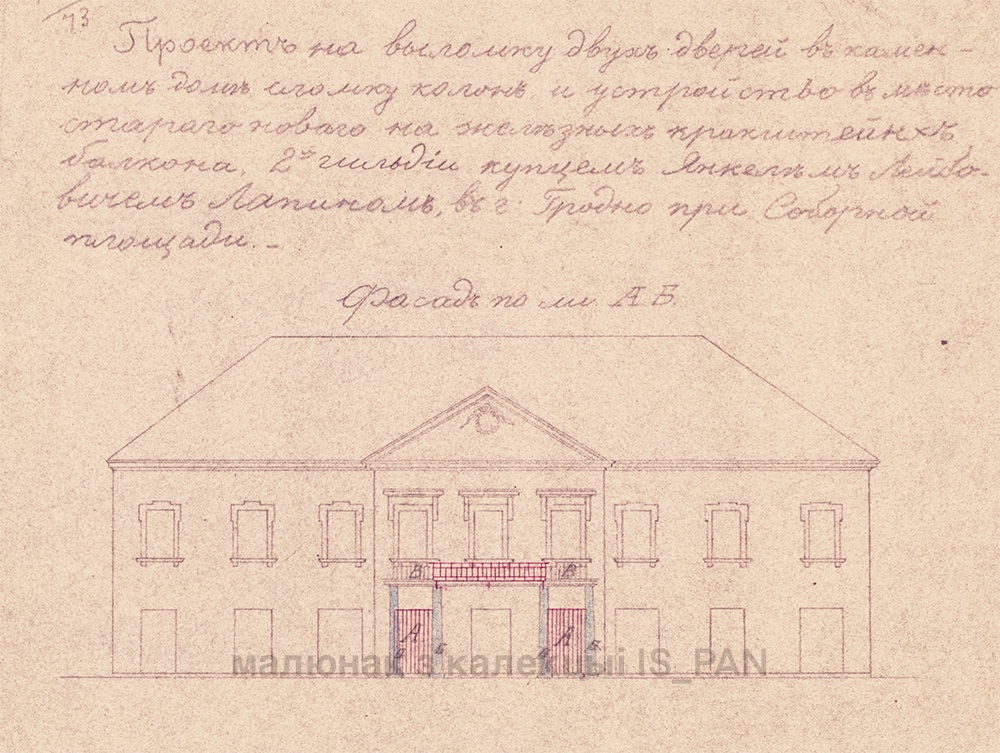 73
Проектъ на выломку двухъ дверей въ камен-
номъ домѣ сломку колонъ, и устройство вмѣсто
стараго новаго на желѣзныхъ кракштейнхъ
балкона, 2й гильдіи купцемъ Янкелемъ Лейбо-
вичемъ Лапиномъ, въ г. Гродно при Соборной
площади.-
Фасадъ по ли. А Б.
В В
А А
Б Б Б Б
малюнак з калекцыі IS_PAN